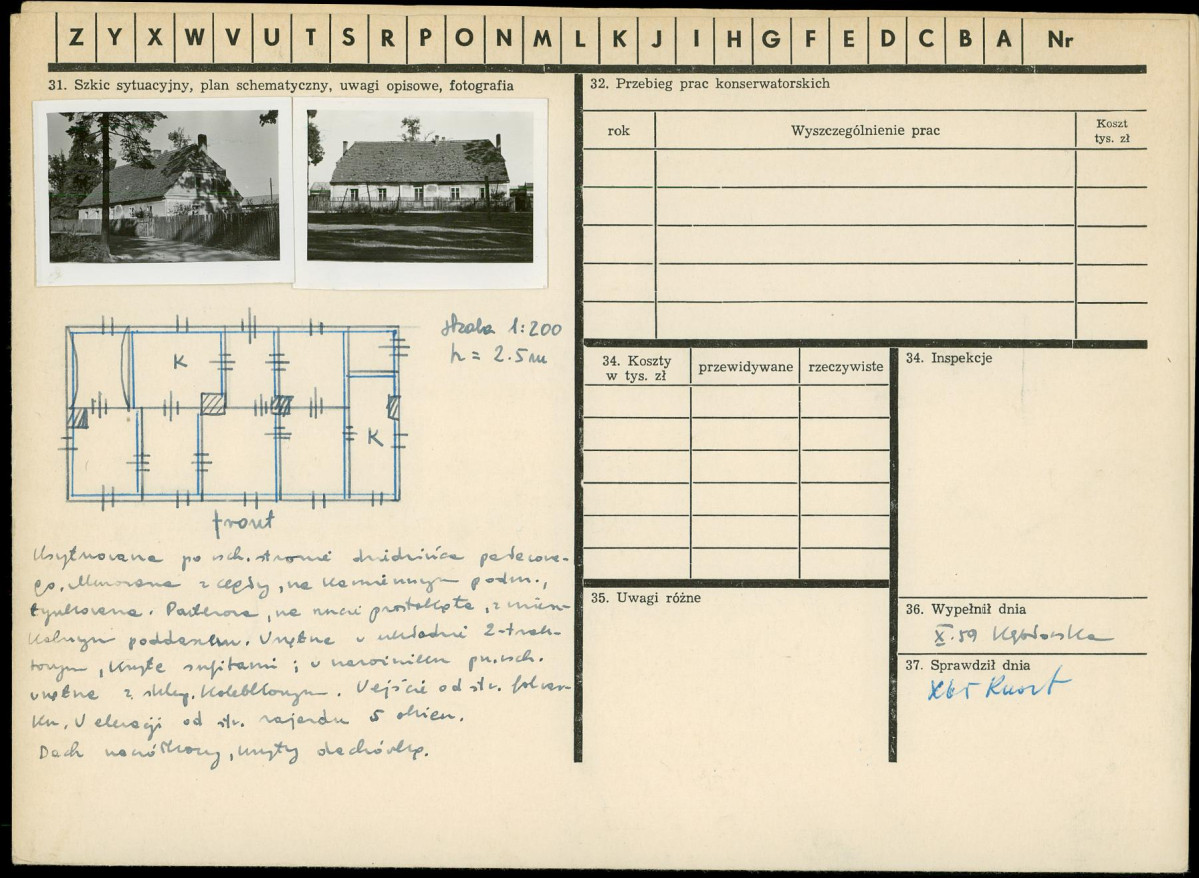 Z Y X W V U T S R P O N M L K J I H G F E D C B A Nr
31. Szkic sytuacyjny, plan schematyczny, uwagi opisowe, fotografia
skala 1:200
h = 2.5m
K
K
front
Usytuowana po wsch. stronie dziedzińca pałacowe-
go. Murowana z cegły, na kamiennym podm.,
tynkowana. Parterowa, na rzucie prostokąta, z miesz-
kalnym poddaszem. Wnętrze w układzie 2-trak-
towym, kryte sufitami; w narożniku pn.wsch.
wnętrze z sklep. kolebkowym. Wejście od str. folwar-
ku. W elewacji od str. zajazdu 5 okien.
Dach naczółkowy, kryty dachówką.
32. Przebieg prac konserwatorskich
rok
Wyszczególnienie prac
Koszt
tys. zł
34. Koszty
w tys. zł
przewidywane
rzeczywiste
34. Inspekcje
35. Uwagi różne
36. Wypełnił dnia
X.59
37. Sprawdził dnia